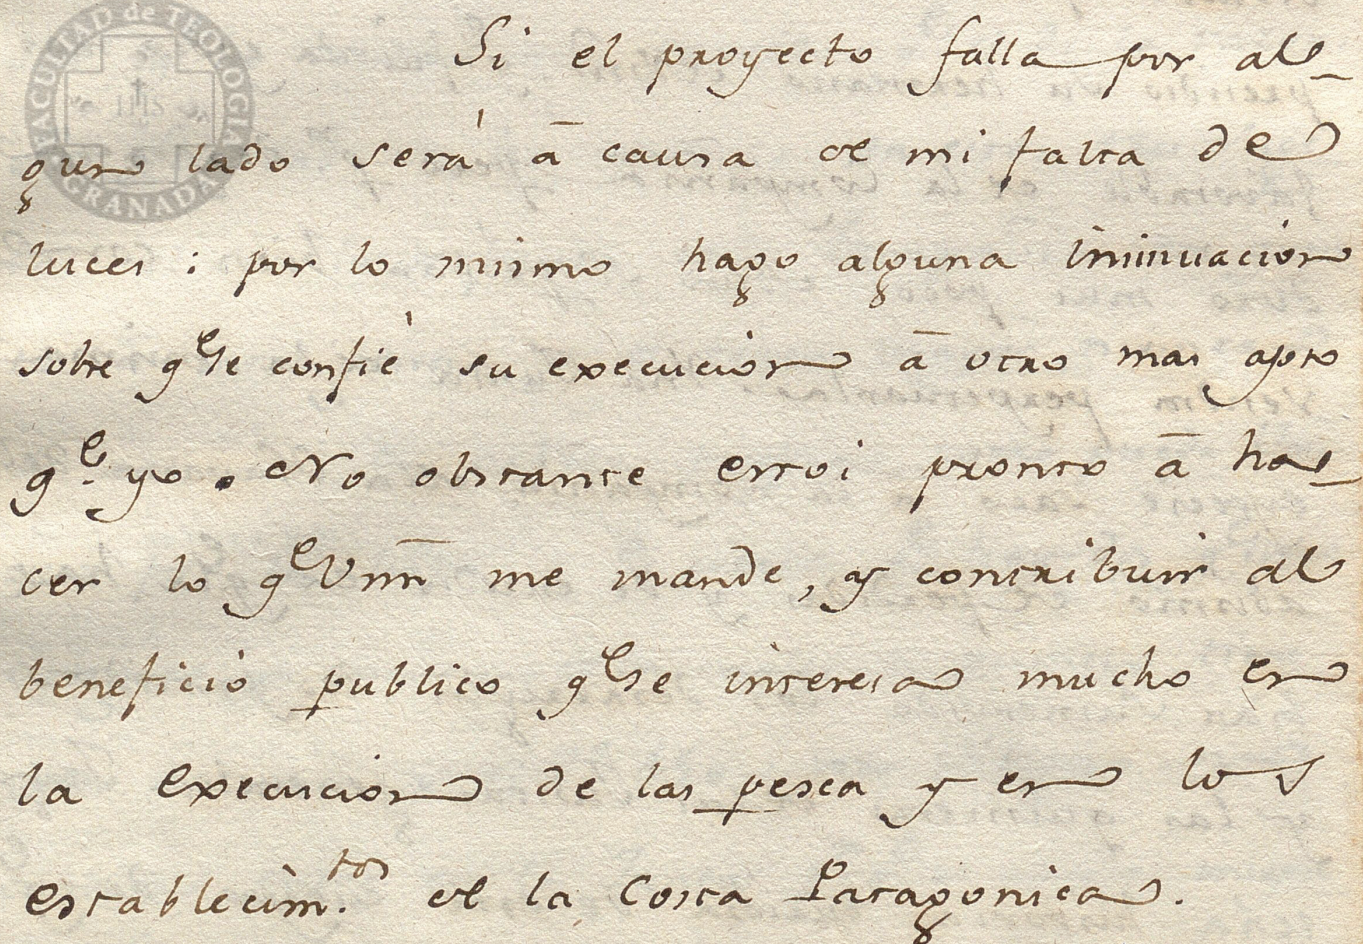 FACULTAD de TEOLOGIA
GRANADA
JHS
Si el proyecto falla por al-
gun lado será ā causa de mi falta de
luces; por lo mismo hago alguna insinuacion
sobre qe se confie su execucion ā otro mas apto
qe. yo. No obstante estoi pronto ā ha-
cer lo qe Vm̄ me mande, y contribuir al
beneficio publico qe se interesa mucho en
la execucion de las pesca y en los
establecim.tos de la Costa Patagonica.